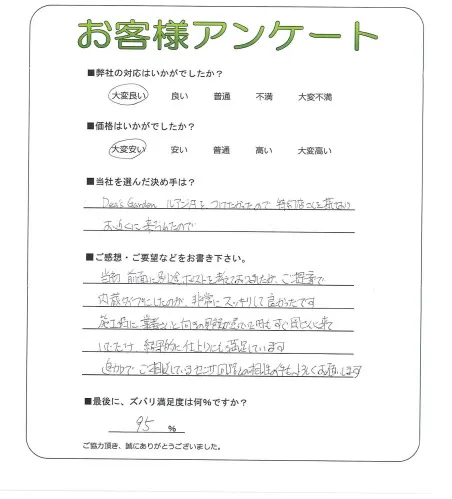 お客様アンケート
■弊社の対応はいかがでしたか？
大変良い 良い 普通 不満 大変不満
■価格はいかがでしたか？
大変安い 安い 普通 高い 大変高い
■当社を選んだ決め手は？
Dea's Garden ルアンタを つけたかったので 特約店さんを
お近くに 来られたので
■ご感想・ご要望などをお書き下さい。
当初 前面に別途ポストを考えておりましたが、ご提案で
内蔵タイプにしたのが、非常に スッキリして良かったです
施工時に 業者さんと 向きの 時もすぐ 来て
いただけ、結果的に仕上りにも満足しています
ご相談しているセンサ の件も よろしくお願いします
■最後に、ズバリ満足度は何％ですか？
95 ％
ご協力頂き、誠にありがとうございました。